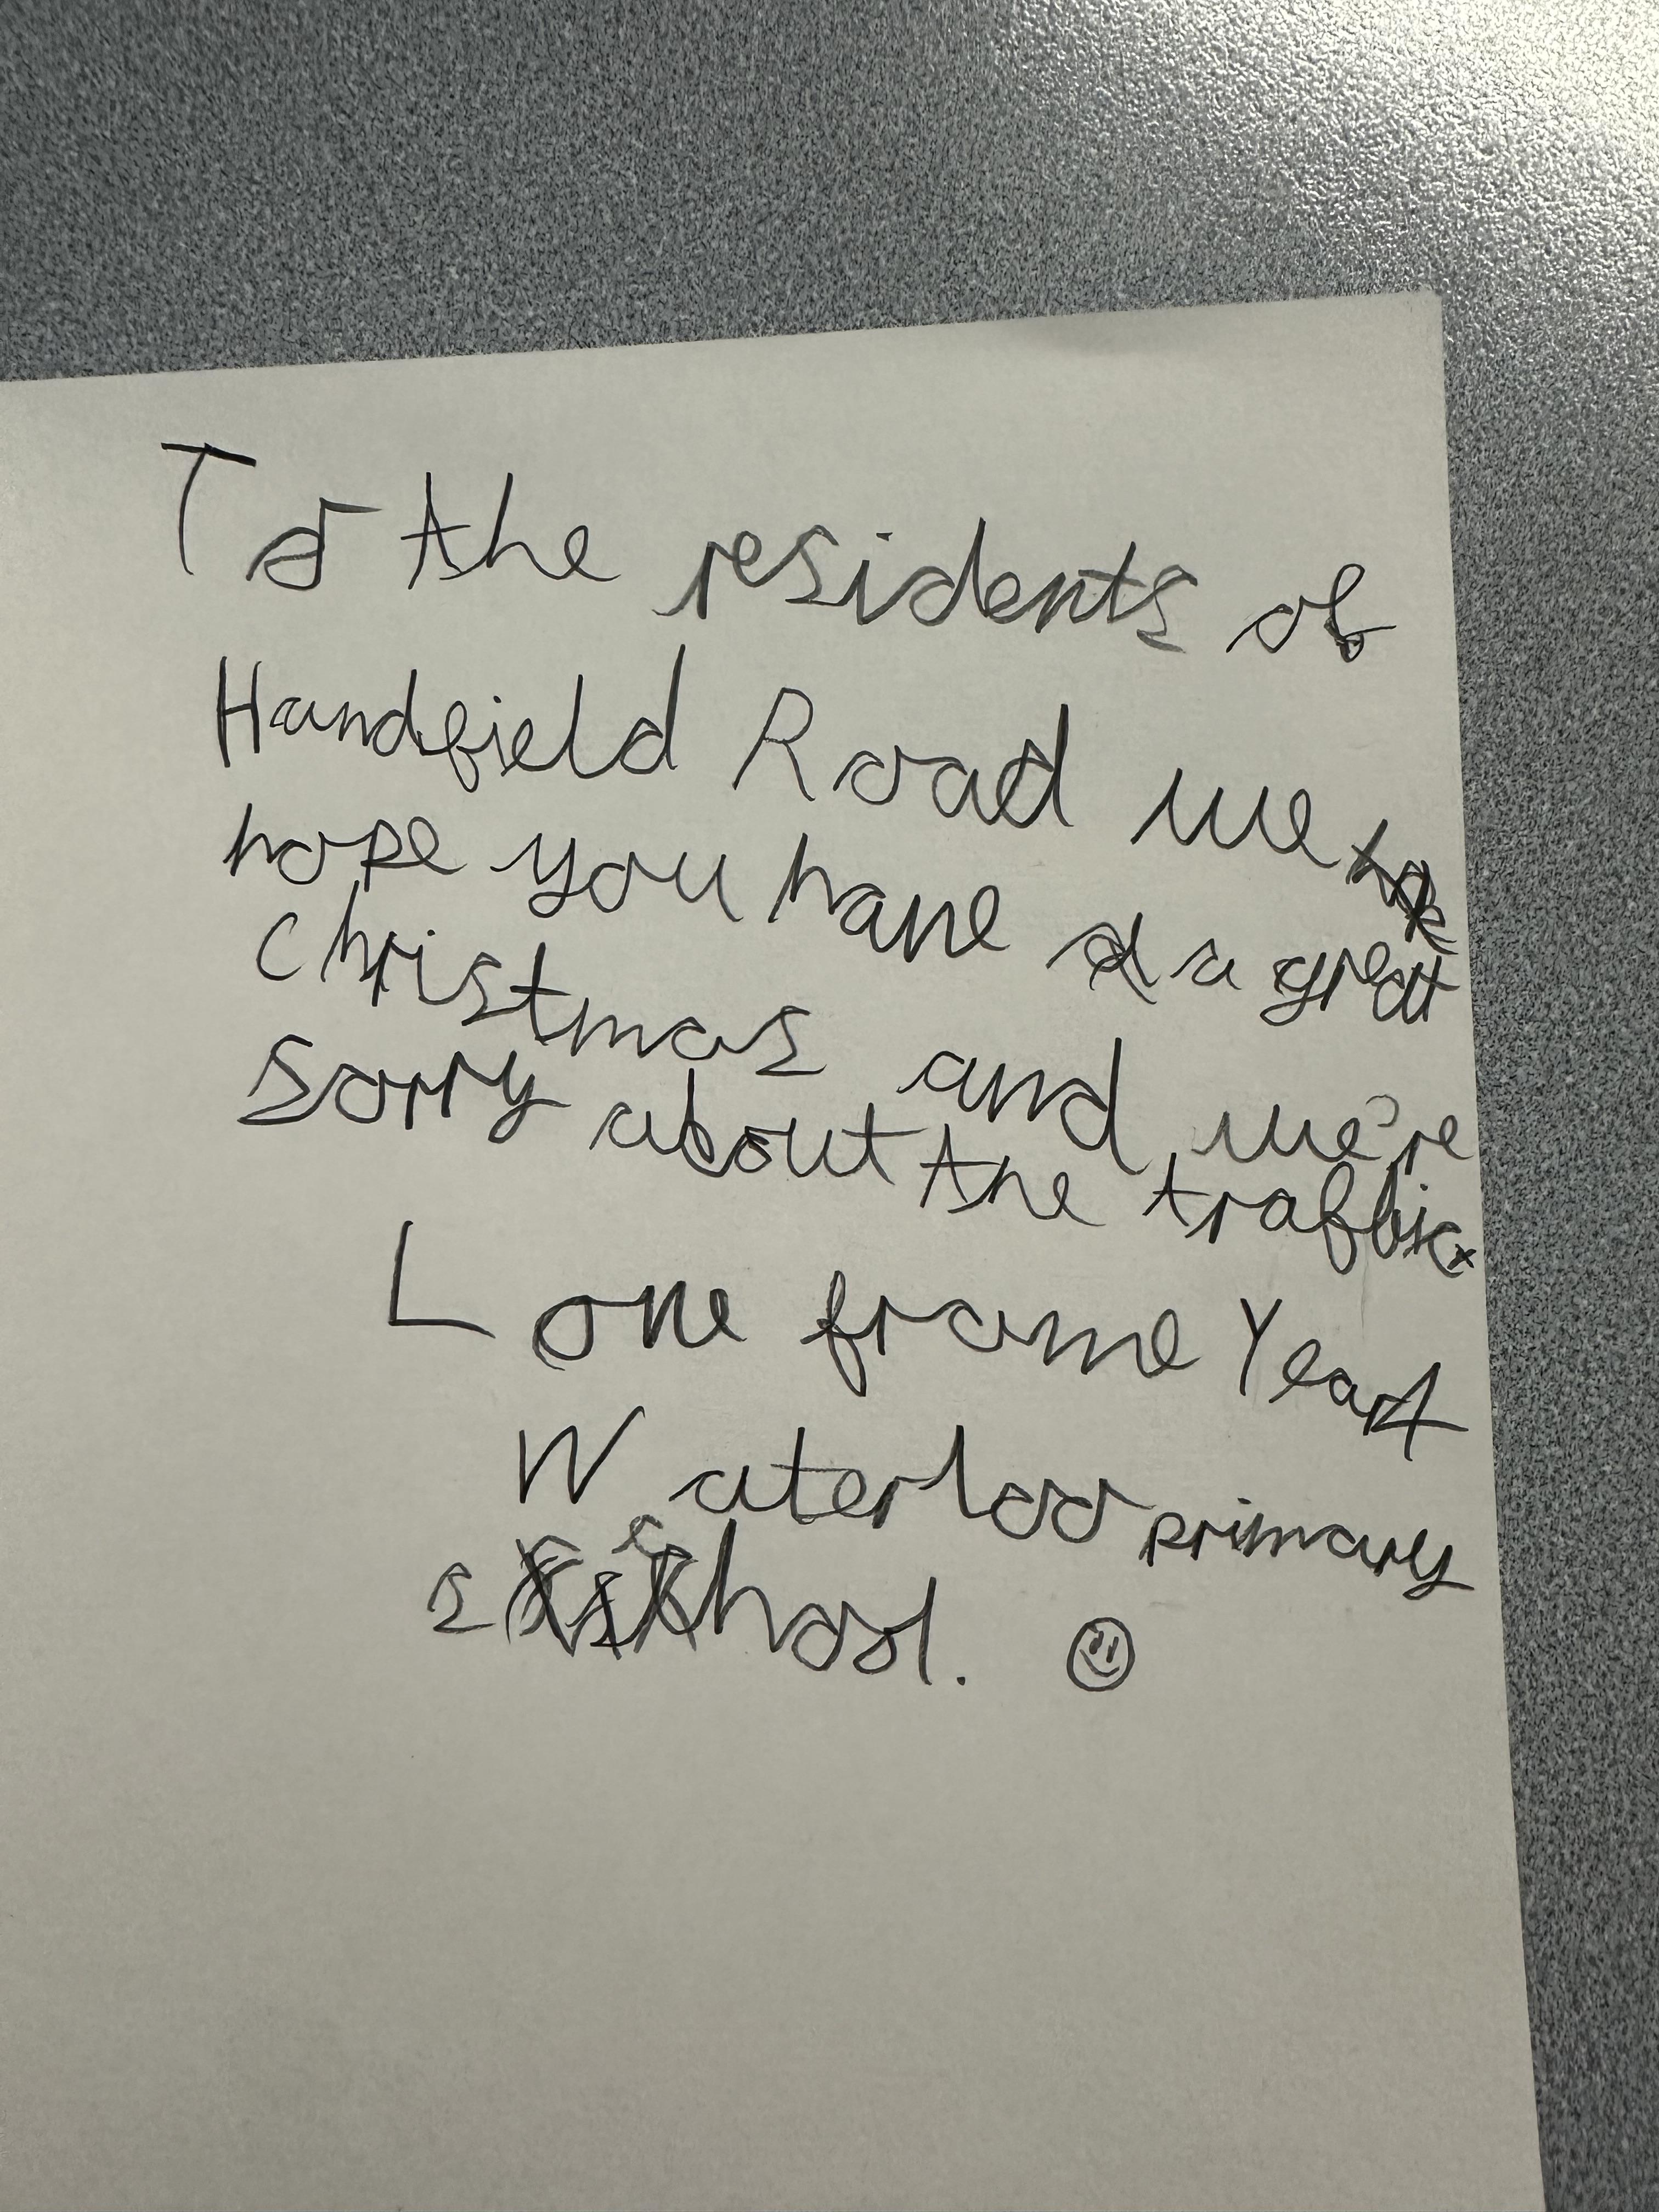 To the residents of
Handfield Road we
hope you have a great
Christmas and we're
sorry about the traffic.
Love from Year 4
Waterloo primary
school.